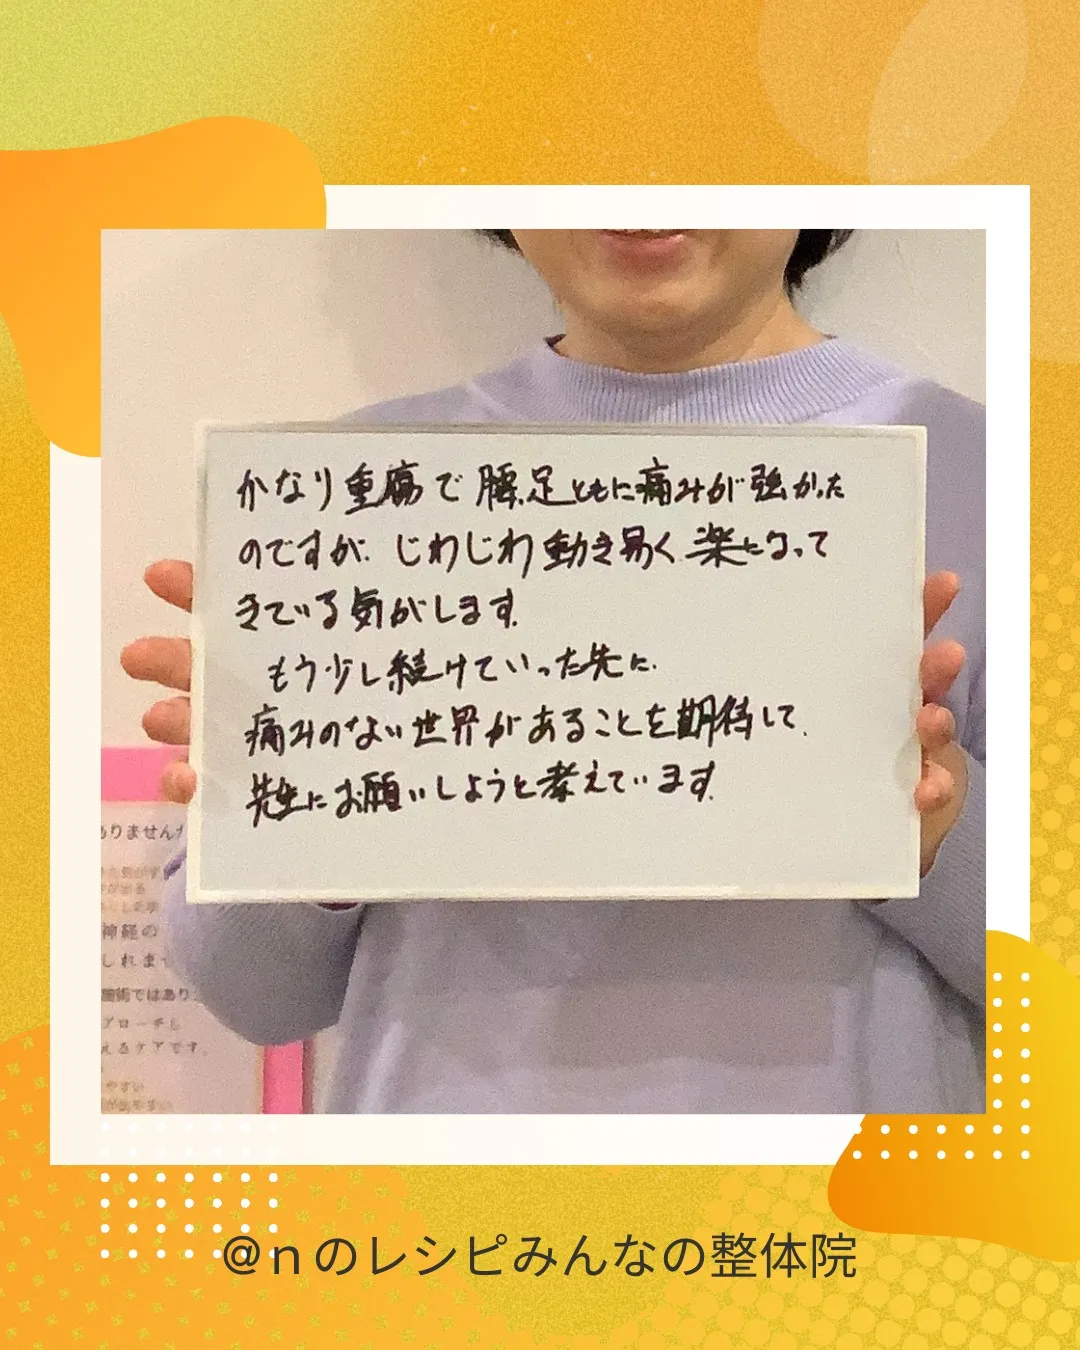 かなり重傷で腰、足ともに痛みが強かった
のですが、じわじわ動き易く、楽になって
きている気がします。
もう少し続けていった先に、
痛みのない世界があることを期待して、
先生にお願いしようと考えています。
ありませんか
神経の
しれませ
施術ではあり
プローチし
えるケアです。
やすい
@nのレシピみんなの整体院